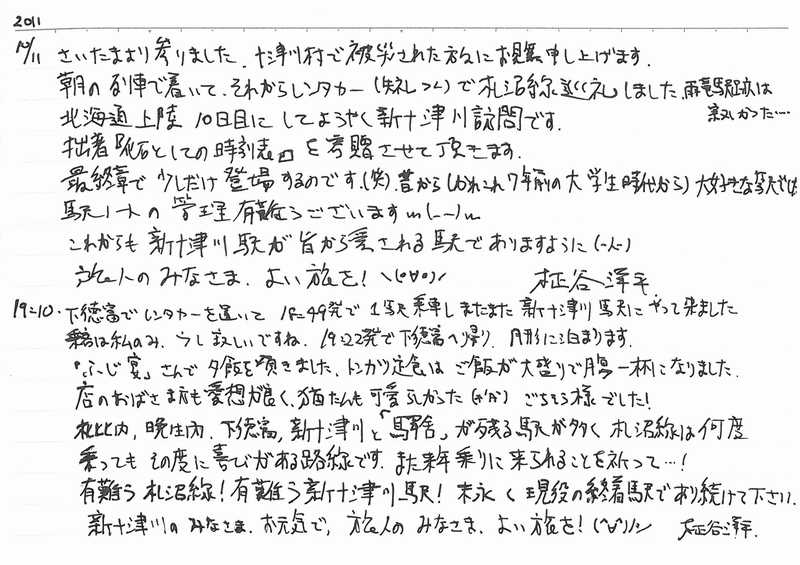 2011
10/11 さいたまより参りました。十津川村で被災された方にお見舞申し上げます。
朝の列車で着いて、それからレンタカー(失礼つく)で札沼線巡礼しました。雨竜駅跡は
寂しかった…
北海道上陸10日目にしてようやく新十津川訪問です。
拙著『化石としての時刻表』を寄贈させて頂きます。
最終章で少しだけ登場するのです。(笑)昔から(かれこれ7年前の大学生時代から)大好きな駅では
駅ノートの管理有難うございますm(_ _)m
これからも新十津川駅が皆から愛される駅でありますように(-人-)
旅人のみなさま、よい旅を!ヽ(^∀^)ノ 柾谷洋平
19:10. 下徳富でレンタカーを置いて18:49発で1駅乗車しまたまた新十津川駅にやって来ました
乗客は私のみ。少し寂しいですね。19:22発で下徳富へ帰り、月形に泊まります。
「ふじ宴」さんで夕飯を頂きました。トンカツ定食はご飯が大盛りで腹一杯になりました。
店のおばさまも愛想が良く、猫たんも可愛らしかった ごちそう様でした!
札比内、晩生内、下徳富、新十津川と「駅舎」が残る駅が多く札沼線は何度
乗ってもその度に喜びがある路線です。また来年乗りに来られることを祈って…!
有難う札沼線!有難う新十津川駅!末永く現役の終着駅であり続けて下さい。
新十津川のみなさま、お元気で、旅人のみなさま、よい旅を! 柾谷洋平